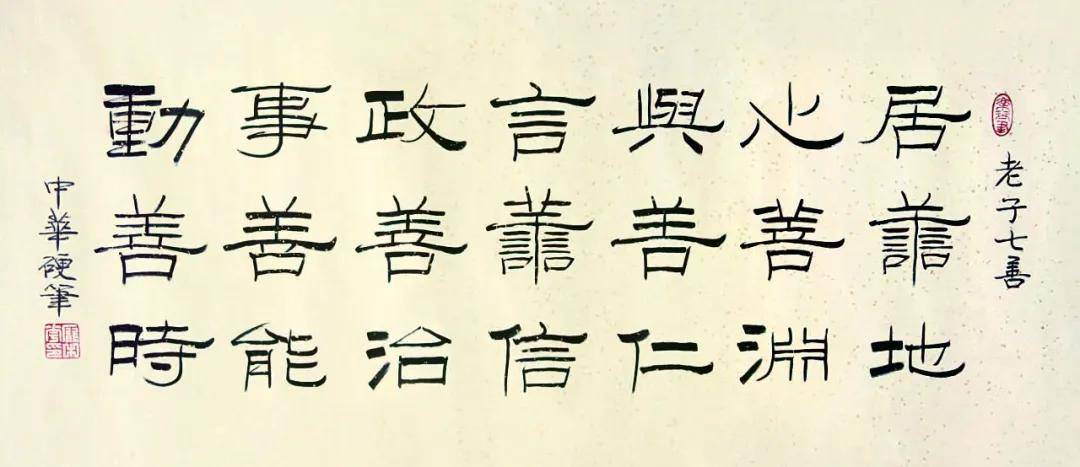 老子七善
居譱地
心善淵
與善仁
言譱信
政善治
事善能
動善時
中華硬筆